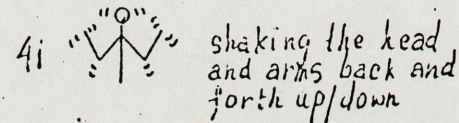 4i shaking the head
and arms back and
forth up/down